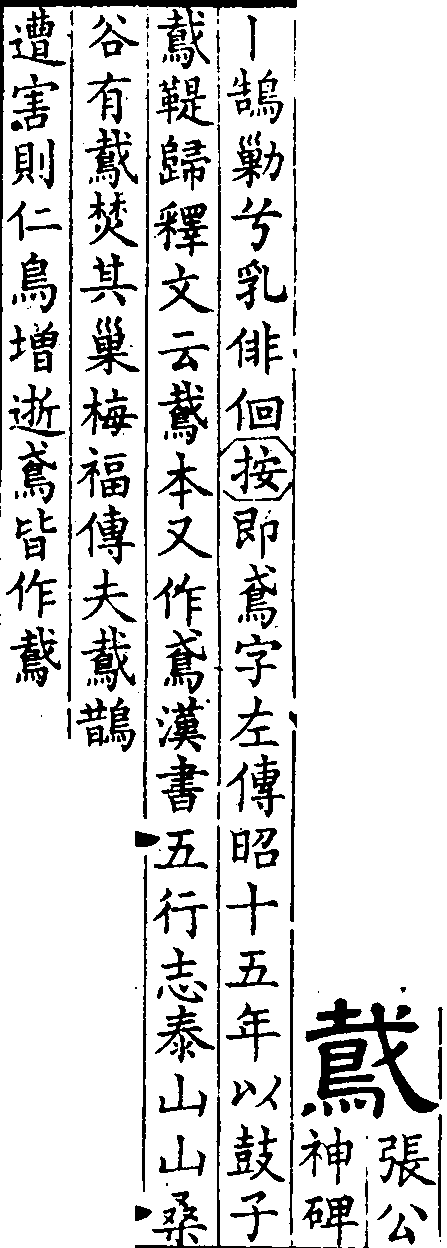 䳒張公神碑
丨鵠勦兮乳俳佪按即鳶字左傳昭十五年以鼓子
䳒鞮歸釋文云䳒本又作鳶漢書五行志泰山山桑
谷有䳒焚其巢梅福傳夫䳒鵲
遭害則仁鳥增逝鳶皆作䳒